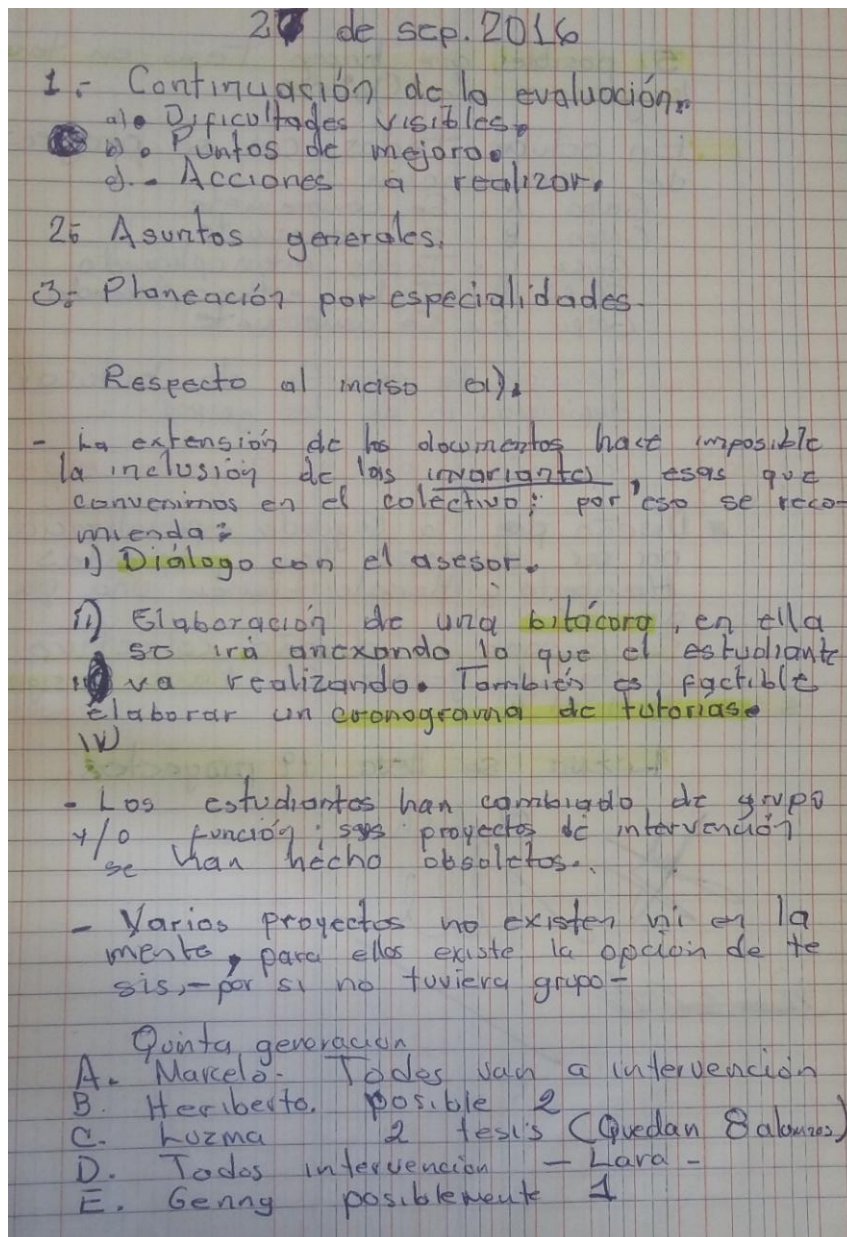 27 de sep. 2016
1.- Continuación de la evaluación.
a). Dificultades visibles.
b). Puntos de mejora.
c).- Acciones a realizar.
2.- Asuntos generales.
3.- Planeación por especialidades.
Respecto al inciso a).
- La extensión de los documentos hace imposible
la inclusión de las invariantes, esas que
convenimos en el colectivo; por eso se reco-
mienda:
i) Diálogo con el asesor.
ii) Elaboración de una bitácora, en ella
se irá anexando lo que el estudiante
va realizando. También es factible
elaborar un cronograma de tutorías.
IV)
- Los estudiantes han cambiado de grupo
y/o función; sus proyectos de intervención
se han hecho obsoletos..
- Varios proyectos no existen ni en la
mente, para ellos existe la opción de te
sis,- por si no tuviera grupo-
Quinta generación
A. Marcelo. Todos van a intervención
B. Heriberto. posible 2
C. Luzma 2 tesis (Quedan 8 alumnos)
D. Todos intervención - Lara -
E. Genny posiblemente 1